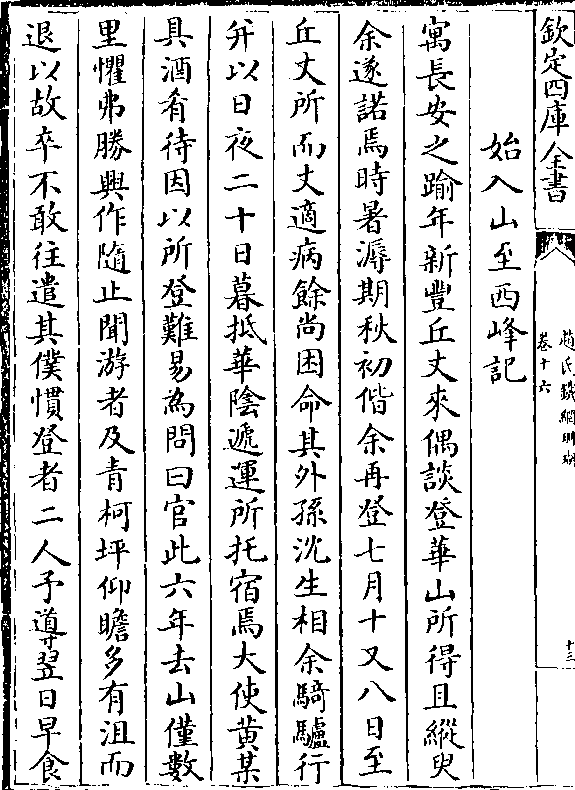 欽定四庫全書
趙氏鐵網珊瑚
卷十六
十三
始入山至西峰記
寓長安之踰年新豐丘丈來偶談登華山所得且縱臾
余遂諾焉時暑溽期秋初偕余再登七月十又八日至
丘丈所而丈適病餘尚困命其外孫沈生相余騎驢行
并以日夜二十日暮抵華陰遞運所托宿焉大使黃某
具酒肴待因以所登難易為問曰官此六年去山僅數
里懼弗勝興作隨止聞游者及青柯坪仰瞻多有沮而
退以故卒不敢往遣其僕慣登者二人予導翌日早食